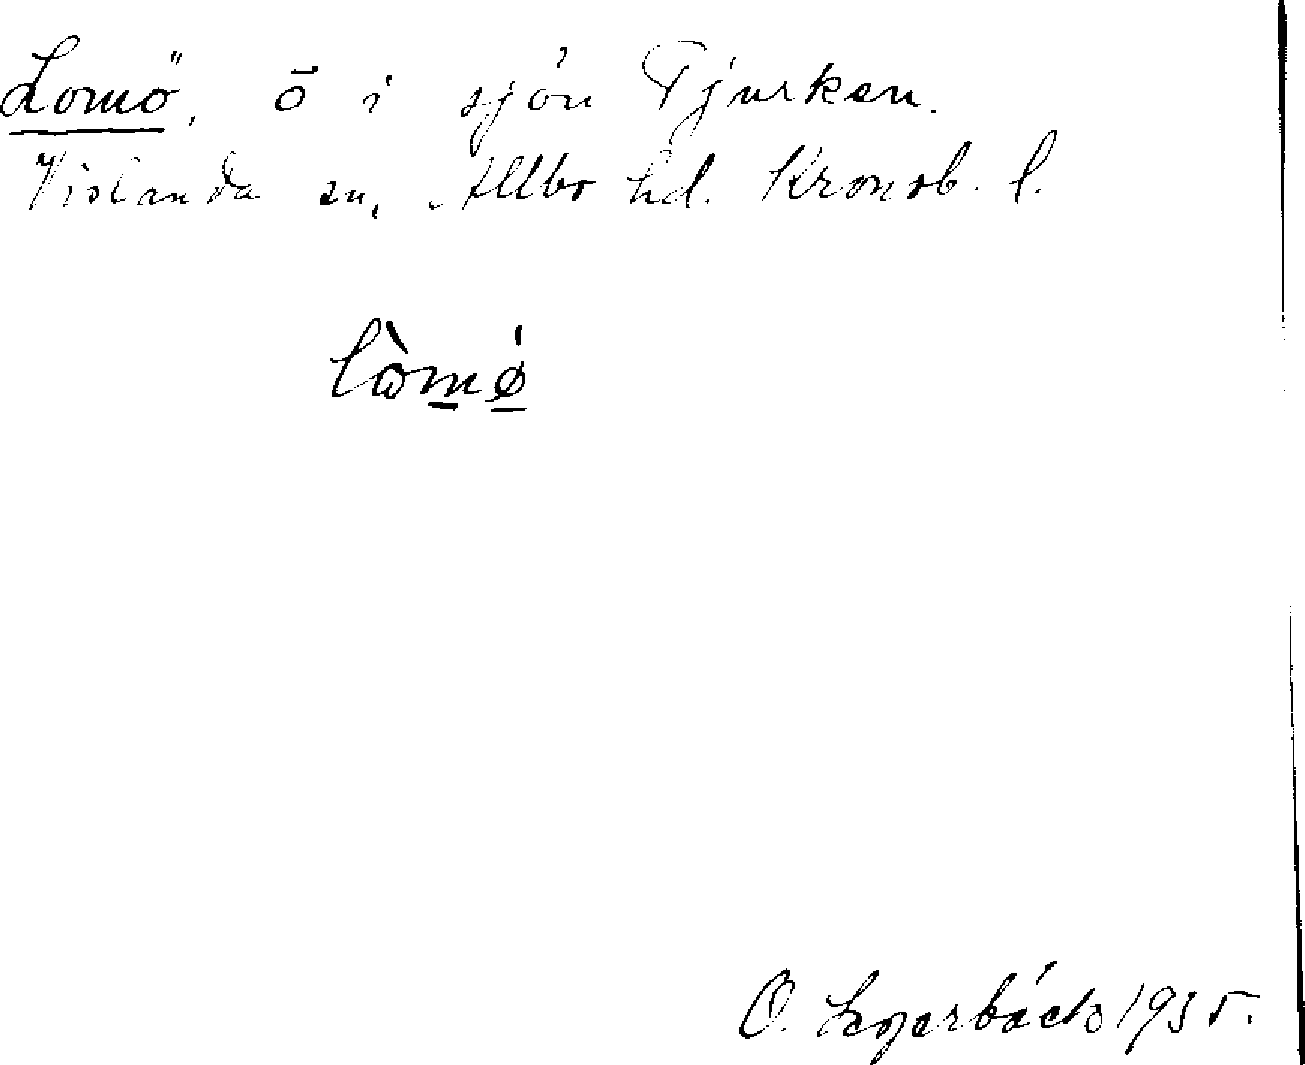 Lomö, ö i sjön Tjurken.
Vislanda sn, Allbo hd. Kronob. l.
lòmǿ
O. Lagerbäck 1935.